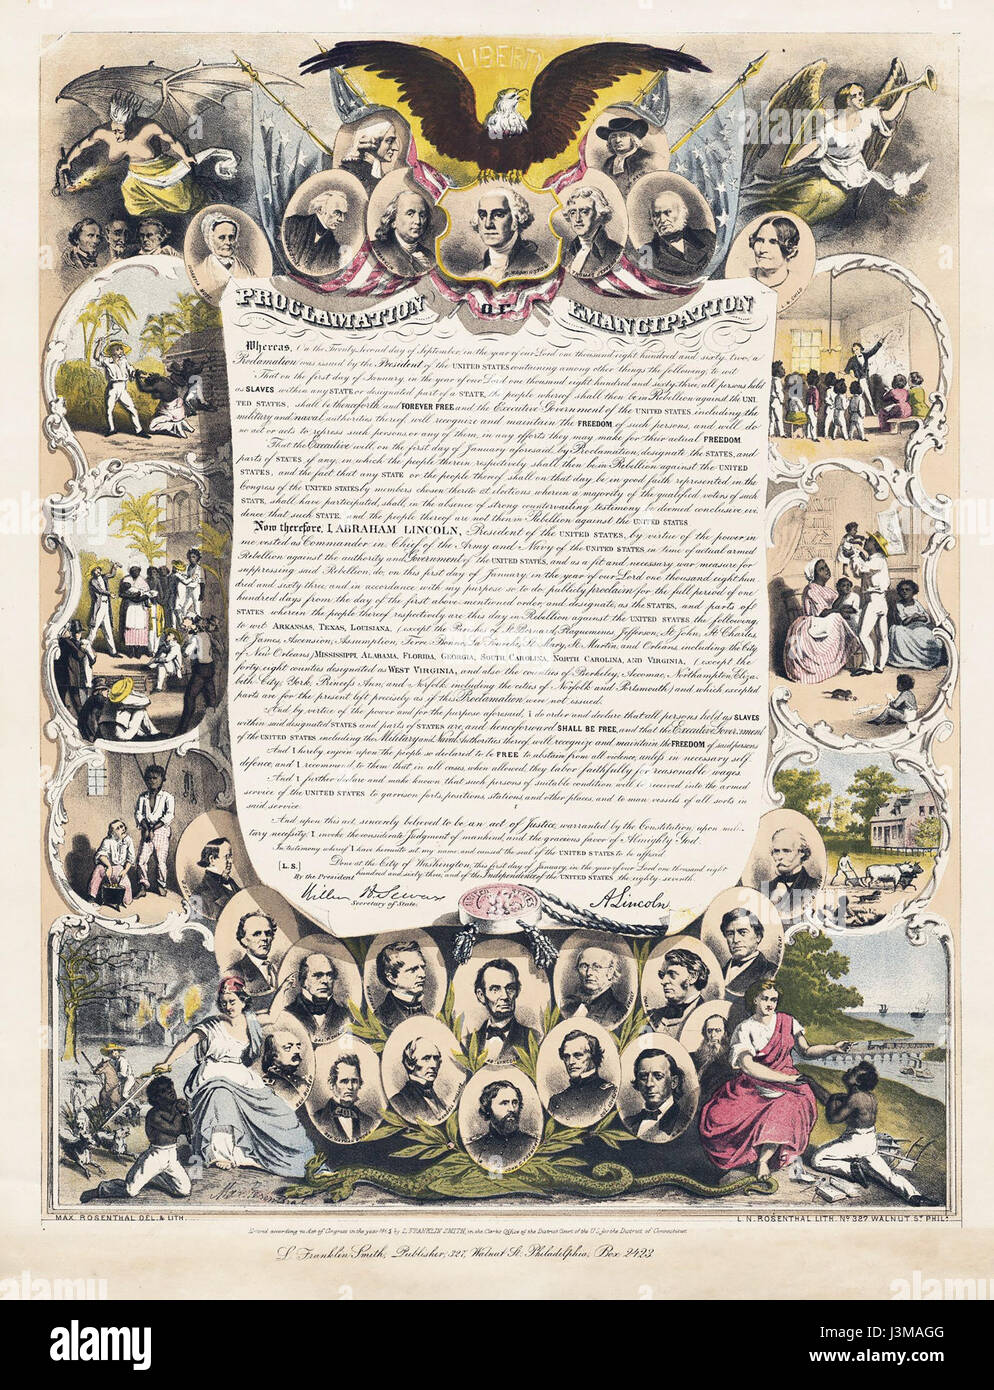 LIBERTY
G. WASHINGTON
PROCLAMATION OF EMANCIPATION
Whereas, On the Twenty Second day of September, in the year of our Lord one thousand eight hundred and sixty two, a
Proclamation was issued by the President of the UNITED STATES containing among other things the following, to wit
That on the first day of January, in the year of our Lord one thousand eight hundred and sixty three, all persons held
as SLAVES within any STATE or designated part of a STATE, the people whereof shall then be in Rebellion against the UNI
TED STATES, shall be thenceforth and FOREVER FREE and the Executive Government of the UNITED STATES including the
military and naval authorities thereof, will recognize and maintain the FREEDOM of such persons, and will do
no act or acts to repress such persons or any of them, in any efforts they may make for their actual FREEDOM
That the Executive will on the first day of January aforesaid, by Proclamation, designate the STATES, and
parts of STATES if any, in which the people therein respectively shall then be in Rebellion against the UNITED
STATES, and the fact that any STATE or the people thereof shall on that day, be in good faith represented in the
Congress of the UNITED STATES by members chosen thereto at elections wherein a majority of the qualified voters of such
STATE, shall have participated, shall, in the absence of strong countervailing testimony be deemed conclusive evi
dence that such STATE, and the people thereof are not then in Rebellion against the UNITED STATES
Now therefore, I, ABRAHAM LINCOLN, President of the UNITED STATES, by virtue of the power in
me vested as Commander in Chief of the Army and Navy of the UNITED STATES in time of actual armed
Rebellion against the authority and Government of the UNITED STATES, and as a fit and necessary war measure for
suppressing said Rebellion, do, on this first day of January, in the year of our Lord one thousand eight hun
dred and sixty three, and in accordance with my purpose so to do, publicly proclaim for the full period of one
hundred days from the day of the first above mentioned order, and designate, as the STATES, and parts of
STATES wherein the people thereof respectively are this day in Rebellion against the UNITED STATES the following
to wit ARKANSAS, TEXAS, LOUISIANA, (except the Parishes of St Bernard, Plaquemines, Jefferson, St John, St Charles
St James, Ascension, Assumption, Terre Bonne, La Fourche, St Mary, St Martin, and Orleans, including the City
of New Orleans) MISSISSIPPI, ALABAMA, FLORIDA, GEORGIA, SOUTH CAROLINA, NORTH CAROLINA, AND VIRGINIA, (except the
forty eight counties designated as WEST VIRGINIA, and also the counties of Berkeley, Accomac, Northampton, Eliza
beth City, York, Princess Ann, and Norfolk, including the cities of Norfolk and Portsmouth) and which excepted
parts are for the present left precisely as if this Proclamation were not issued.
And by virtue of the power and for the purpose aforesaid, I do order and declare that all persons held as SLAVES
within said designated STATES and parts of STATES are, and henceforward SHALL BE FREE, and that the Executive Government
of the UNITED STATES including the Military and Naval Authorities thereof will recognize and maintain the FREEDOM of said persons
And I hereby enjoin upon the people so declared to be FREE to abstain from all violence, unless in necessary self
defence, and I recommend to them that in all cases, when allowed, they labor faithfully for reasonable wages.
And I further declare and make known that such persons of suitable condition will be received into the armed
service of the UNITED STATES to garrison forts, positions, stations, and other places, and to man vessels of all sorts in
said service.
And upon this act, sincerely believed to be an act of Justice, warranted by the Constitution, upon mili
tary necessity, I invoke the considerate Judgment of mankind and the gracious favor of Almighty God.
In testimony whereof I have hereunto set my name, and caused the seal of the UNITED STATES to be affixed
[L. S.] Done at the City of Washington, this first day of January, in the year of our Lord one thousand eight
hundred and sixty three, and of the Independence of the UNITED STATES the eighty seventh
By the President
William H Seward
Secretary of State.
A Lincoln
MAX. ROSENTHAL DEL. & LITH.
L. N. ROSENTHAL LITH. No 327 WALNUT ST PHILA
Entered according to Act of Congress in the year 1865 by L. FRANKLIN SMITH, in the Clerks Office of the District Court of the U.S. for the District of Connecticut.
L. Franklin Smith, Publisher, 327, Walnut St. Philadelphia, Box 2423
a
alamy
alamy stock photo
J3MAGG
www.alamy.com